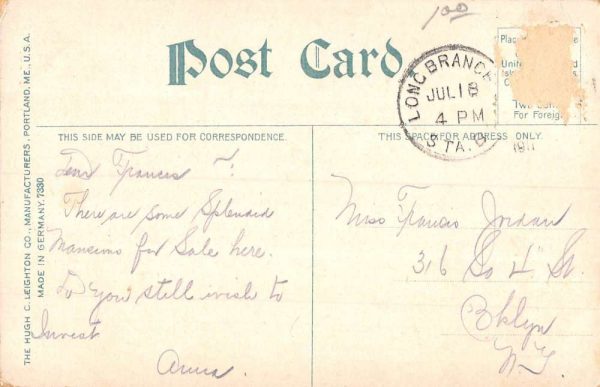 1.00
Post Card
Place
Unite
Isl
Two Cen
For Foreig
LONG BRANCH
JUL 18
4 PM
STA. B.
1911
THIS SIDE MAY BE USED FOR CORRESPONDENCE.
THIS SPACE FOR ADDRESS ONLY.
THE HUGH C. LEIGHTON CO., MANUFACTURERS, PORTLAND, ME., U.S.A.
MADE IN GERMANY. 7330
Dear Frances :
There are some Splendid
Mansions for Sale here.
Do you still wish to
Invest
Anna.
Miss Frances Jordan
316 So 4" St.
Bklyn
N-Y